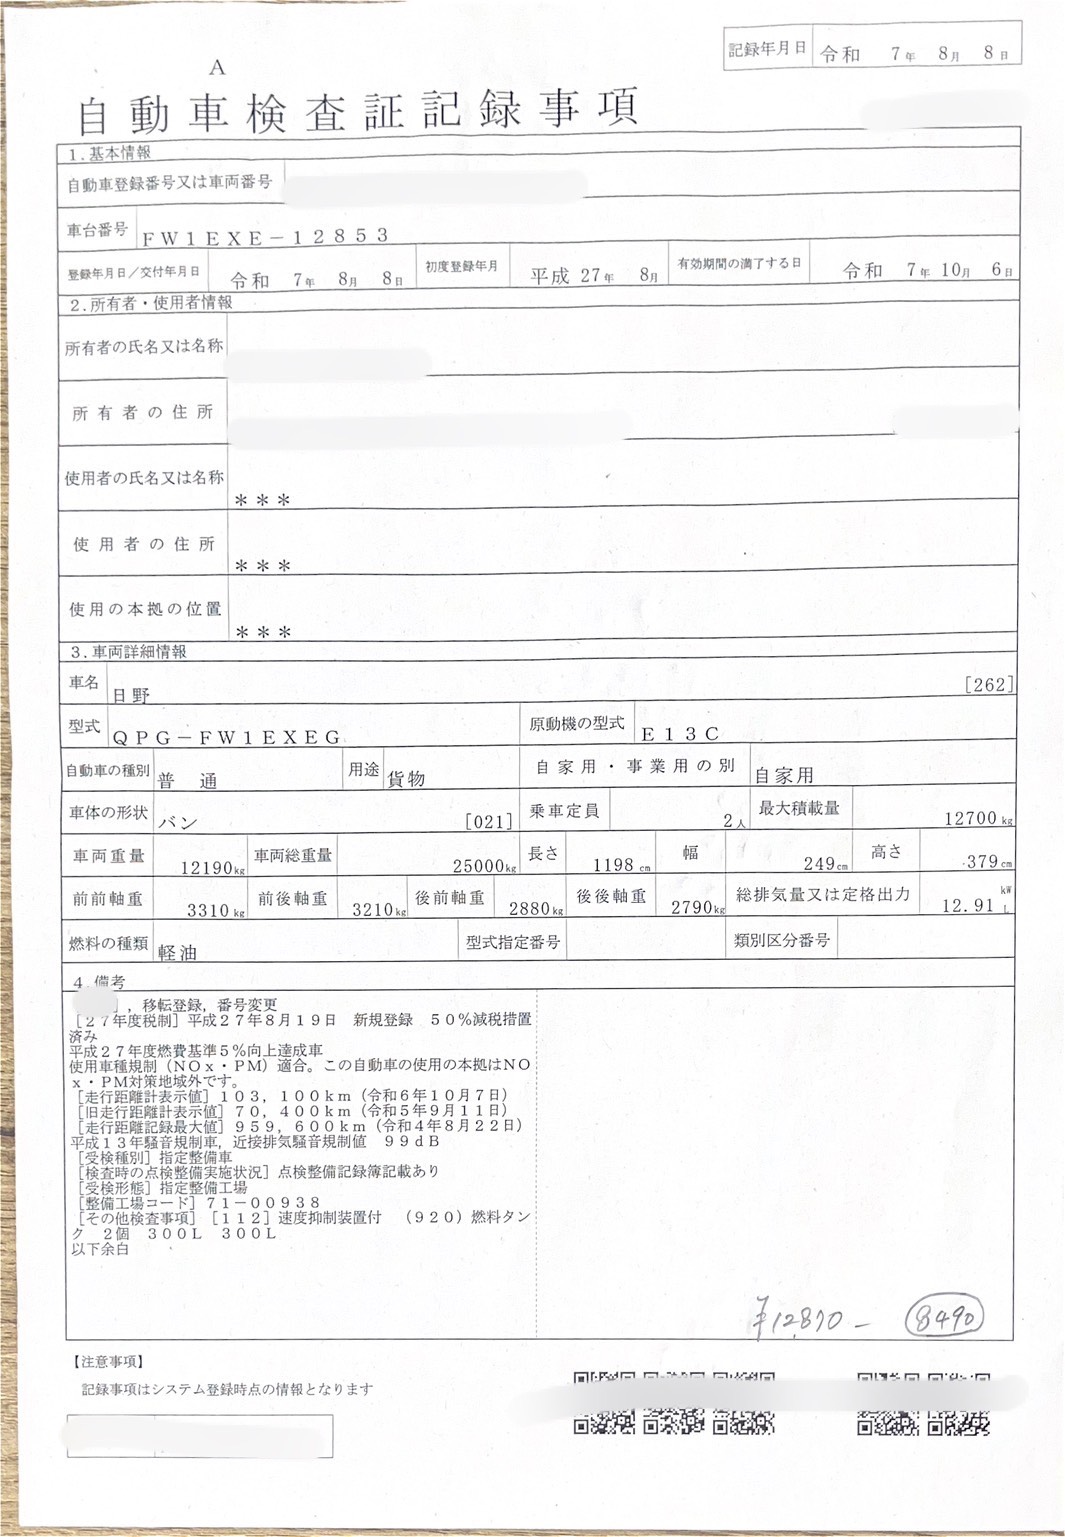 記録年月日 令和 7年 8月 8日
A
自動車検査証記録事項
1.基本情報
自動車登録番号又は車両番号
車台番号 FW1EXE-12853
登録年月日/交付年月日 令和 7年 8月 8日 初度登録年月 平成 27年 8月 有効期間の満了する日 令和 7年 10月 6日
2.所有者・使用者情報
所有者の氏名又は名称
所有者の住所
使用者の氏名又は名称 ***
使用者の住所 ***
使用の本拠の位置 ***
3.車両詳細情報
車名 日野 [262]
型式 QPG-FW1EXEG 原動機の型式 E13C
自動車の種別 普通 用途 貨物 自家用・事業用の別 自家用
車体の形状 バン [021] 乗車定員 2人 最大積載量 12700kg
車両重量 12190kg 車両総重量 25000kg 長さ 1198cm 幅 249cm 高さ 379cm
前前軸重 3310kg 前後軸重 3210kg 後前軸重 2880kg 後後軸重 2790kg 総排気量又は定格出力 12.91 kW L
燃料の種類 軽油 型式指定番号 類別区分番号
4.備考
],移転登録,番号変更
[27年度税制]平成27年8月19日 新規登録 50%減税措置
済み
平成27年度燃費基準5%向上達成車
使用車種規制(NOx・PM)適合。この自動車の使用の本拠はNO
x・PM対策地域外です。
[走行距離計表示値]103,100km(令和6年10月7日)
[旧走行距離計表示値]70,400km(令和5年9月11日)
[走行距離記録最大値]959,600km(令和4年8月22日)
平成13年騒音規制車,近接排気騒音規制値 99dB
[受検種別]指定整備車
[検査時の点検整備実施状況]点検整備記録簿記載あり
[受検形態]指定整備工場
[整備工場コード]71-00938
[その他検査事項][112]速度抑制装置付 (920)燃料タン
ク 2個 300L 300L
以下余白
¥12,870- 8490
【注意事項】
記録事項はシステム登録時点の情報となります